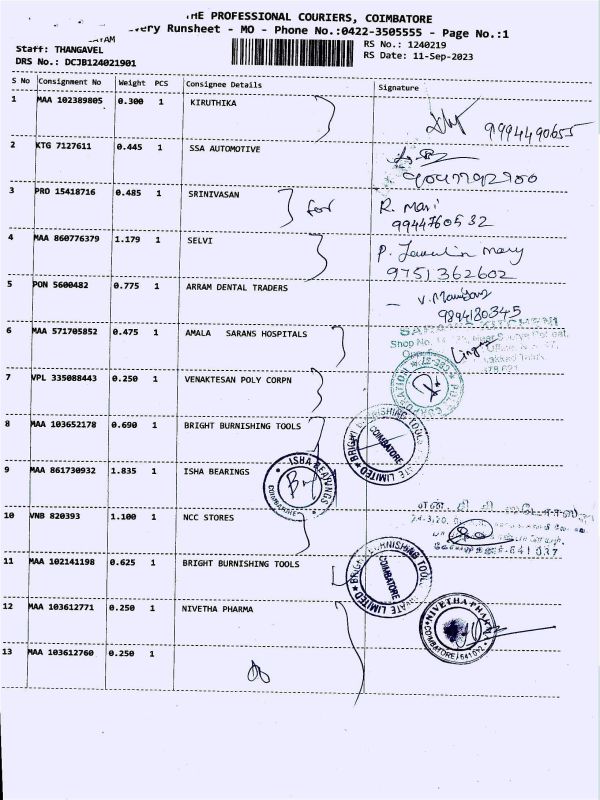 THE PROFESSIONAL COURIERS, COIMBATORE
very Runsheet - MO - Phone No.:0422-3505555 - Page No.:1
Staff: THANGAVEL
RS No.: 1240219
DRS No.: DCJB124021901
RS Date: 11-Sep-2023
S No Consignment No Weight PCS Consignee Details Signature
1 MAA 102389805 0.300 1 KIRUTHIKA
9994490655
2 KTG 7127611 0.445 1 SSA AUTOMOTIVE
3 PRO 15418716 0.485 1 SRINIVASAN for R. Mari
9944760532
4 MAA 860776379 1.179 1 SELVI P. mary
9751362602
5 PON 5600482 0.775 1 ARRAM DENTAL TRADERS
9894180345
6 MAA 571705852 0.475 1 AMALA SARANS HOSPITALS
Shop No.
7 VPL 335088443 0.250 1 VENAKTESAN POLY CORPN
8 MAA 103652178 0.690 1 BRIGHT BURNISHING TOOLS
BRIGHT BURNISHING TOOLS LIMITED COIMBATORE
9 MAA 861730932 1.835 1 ISHA BEARINGS
ISHA BEARINGS COIMBATORE
10 VNB 820393 1.100 1 NCC STORES
641 037
11 MAA 102141198 0.625 1 BRIGHT BURNISHING TOOLS
BRIGHT BURNISHING TOOLS LIMITED COIMBATORE
12 MAA 103612771 0.250 1 NIVETHA PHARMA
NIVETHA PHARMA COIMBATORE
13 MAA 103612760 0.250 1